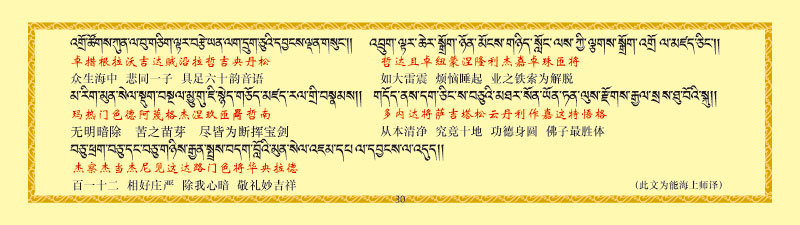 འགྲོ་ཚོགས་ཀུན་ལ་བུ་གཅིག་ལྟར་བརྩེ་ཡན་ལག་དྲུག་ཅུའི་དབྱངས་ལྡན་གསུང།། འབྲུག་ལྟར་ཆེར་སྒྲོག་ཉོན་མོངས་གཉིད་སློང་ལས་ཀྱི་ལྕགས་སྒྲོག་འགྲོལ་མཛད་ཅིང།།
卓措根拉沃吉达赋沿拉哲吉央丹松 哲达且卓纽蒙涅隆利杰嘉卓珠匝将
众生海中 悲同一子 具足六十韵音语 如大雷震 烦恼睡起 业之铁索为解脱
མ་རིག་མུན་སེལ་སྡུག་བསྔལ་མྱུ་གུ་ཇི་སྙེད་གཅོད་མཛད་རལ་གྲི་བསྣམས།། གདོད་ནས་དག་ཅིང་ས་བཅུའི་མཐར་སོན་ཡོན་ཏན་ལུས་རྫོགས་རྒྱལ་སྲས་ཐུ་བོའི་སྐུ།།
玛热门色德阿蔑格杰涅玖匝哲南 多内达将萨吉塔松云丹利作嘉这特悟格
无明暗除 苦之苗芽 尽皆为断挥宝剑 从本清净 究竟十地 功德身圆 佛子最胜体
བཅུ་ཕྲག་བཅུ་དང་བཅུ་གཉིས་རྒྱན་སྤྲས་བདག་བློའི་མུན་སེལ་འཇམ་དཔལ་དབྱངས་ལ་འདུད།།
杰察杰当杰尼见这达路门色将华央拉德
百一十二 相好庄严 除我心暗 敬礼妙吉祥 (此文为能海上师译)
30